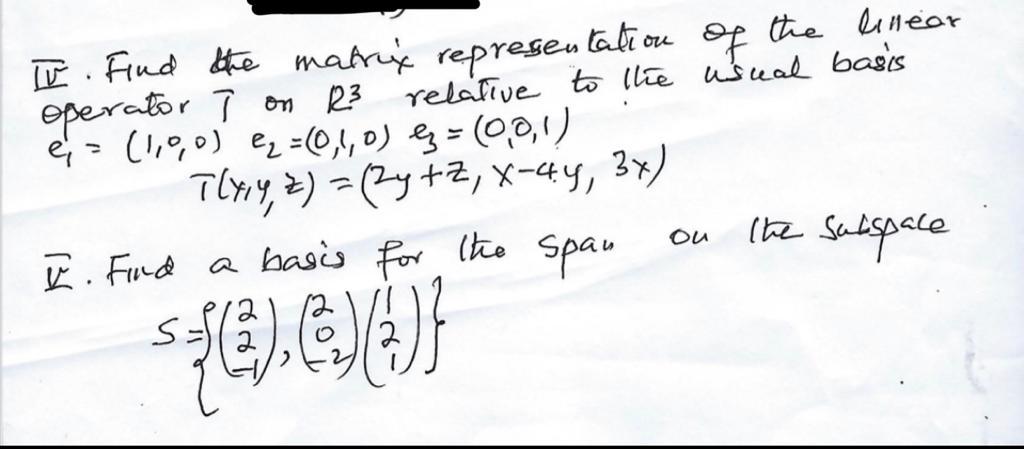 IV. Find the matrix representation of the linear
operator T on R3 relative to the usual basis
e1 = (1,0,0) e2 = (0,1,0) e3 = (0,0,1)
T(x,y,z) = (2y+z, x-4y, 3x)
V. Find a basis for the span on the subspace
S = {(2 2 -1), (2 0 -2) (1 2 1)}